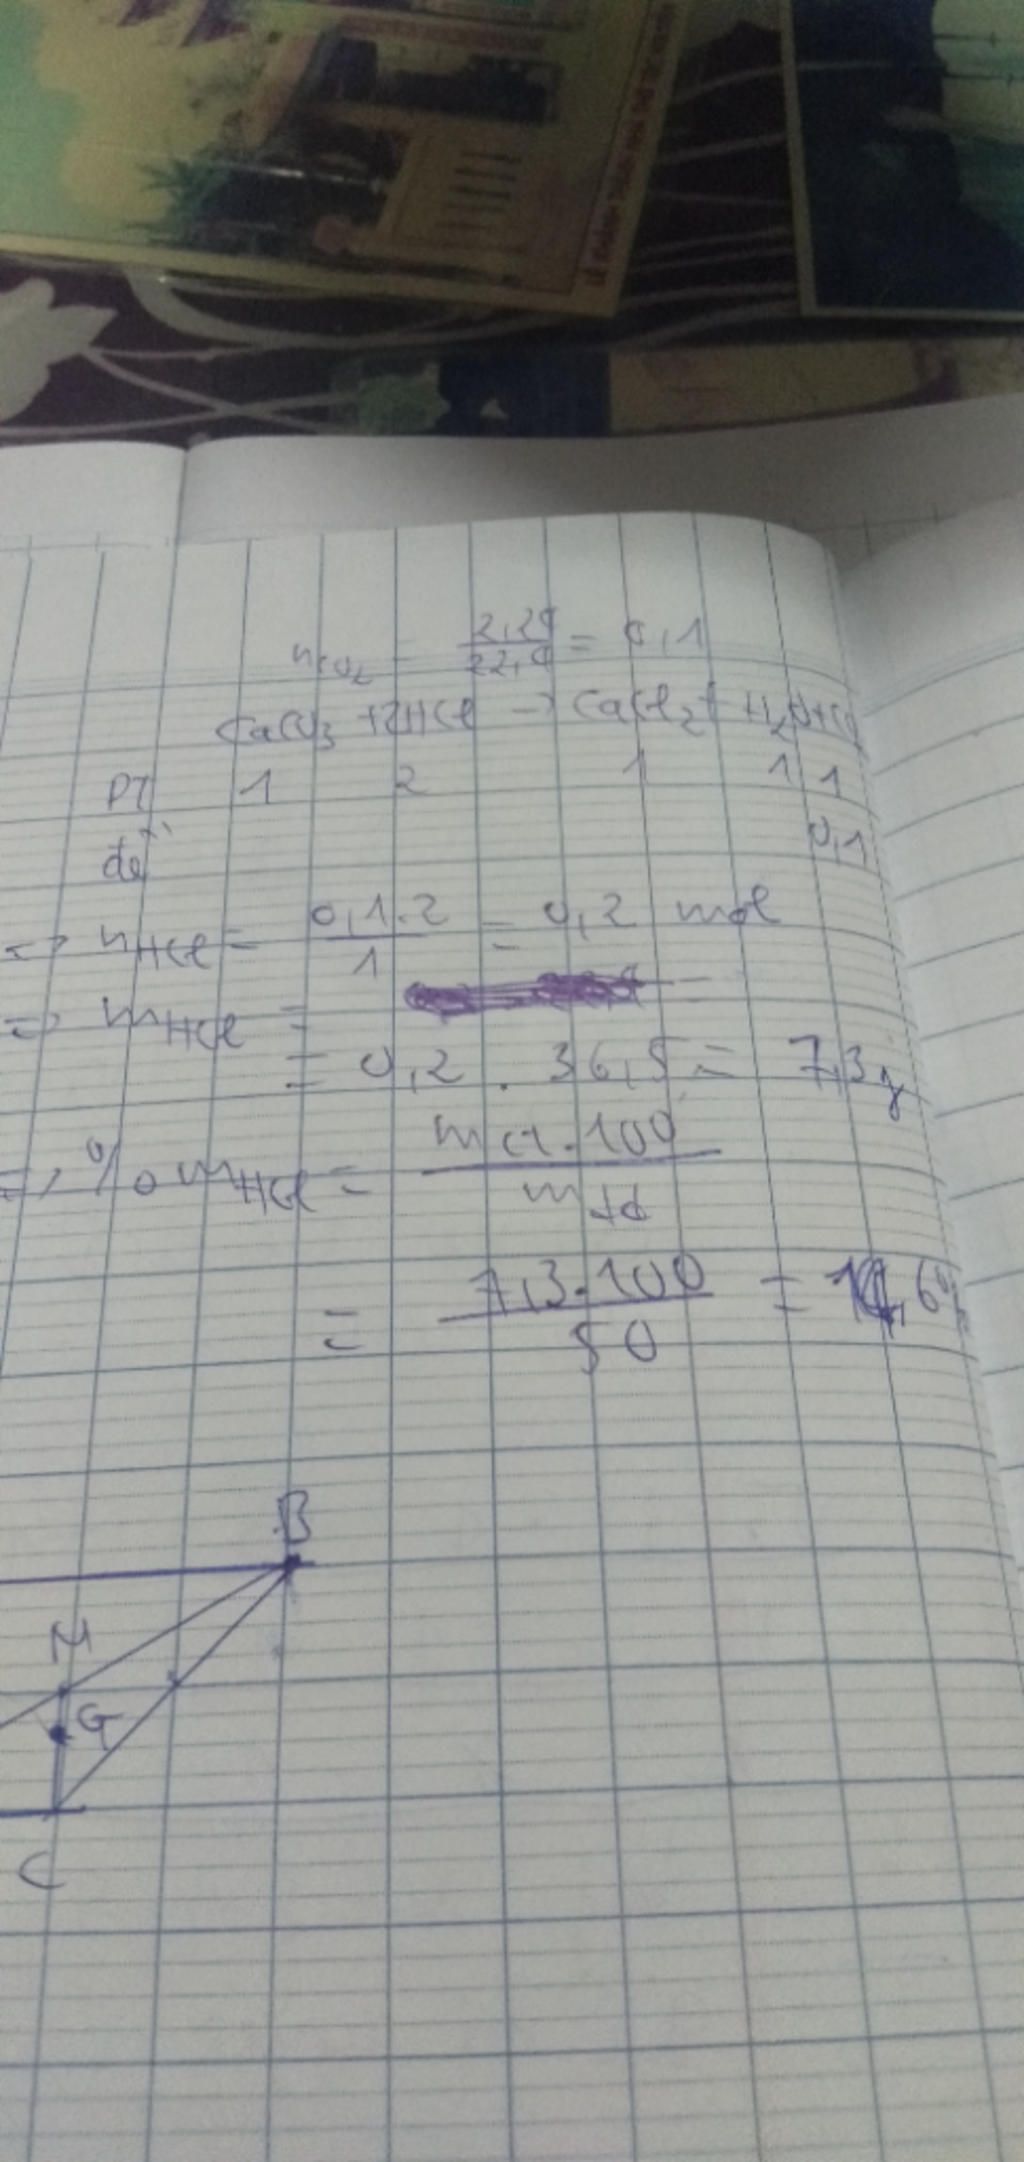 nCO2 = 2,24/22,4 = 0,1
CaCO3 + 2HCl → CaCl2 + H2O + CO
PT 1 2 1 1 1
đề 0,1
=> nHCl = 0,1.2/1 = 0,2 mol
=> mHCl = =
= 0,2 . 36,5 = 7,3g
=> % mHCl = mct.100/mdd
= 7,3.100/50 = 14,6%
B
M
G
C